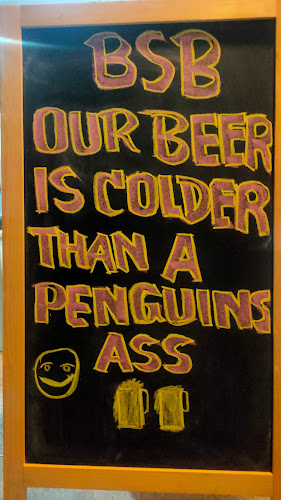 BSB
OUR BEER
IS COLDER
THAN A
PENGUINS
ASS